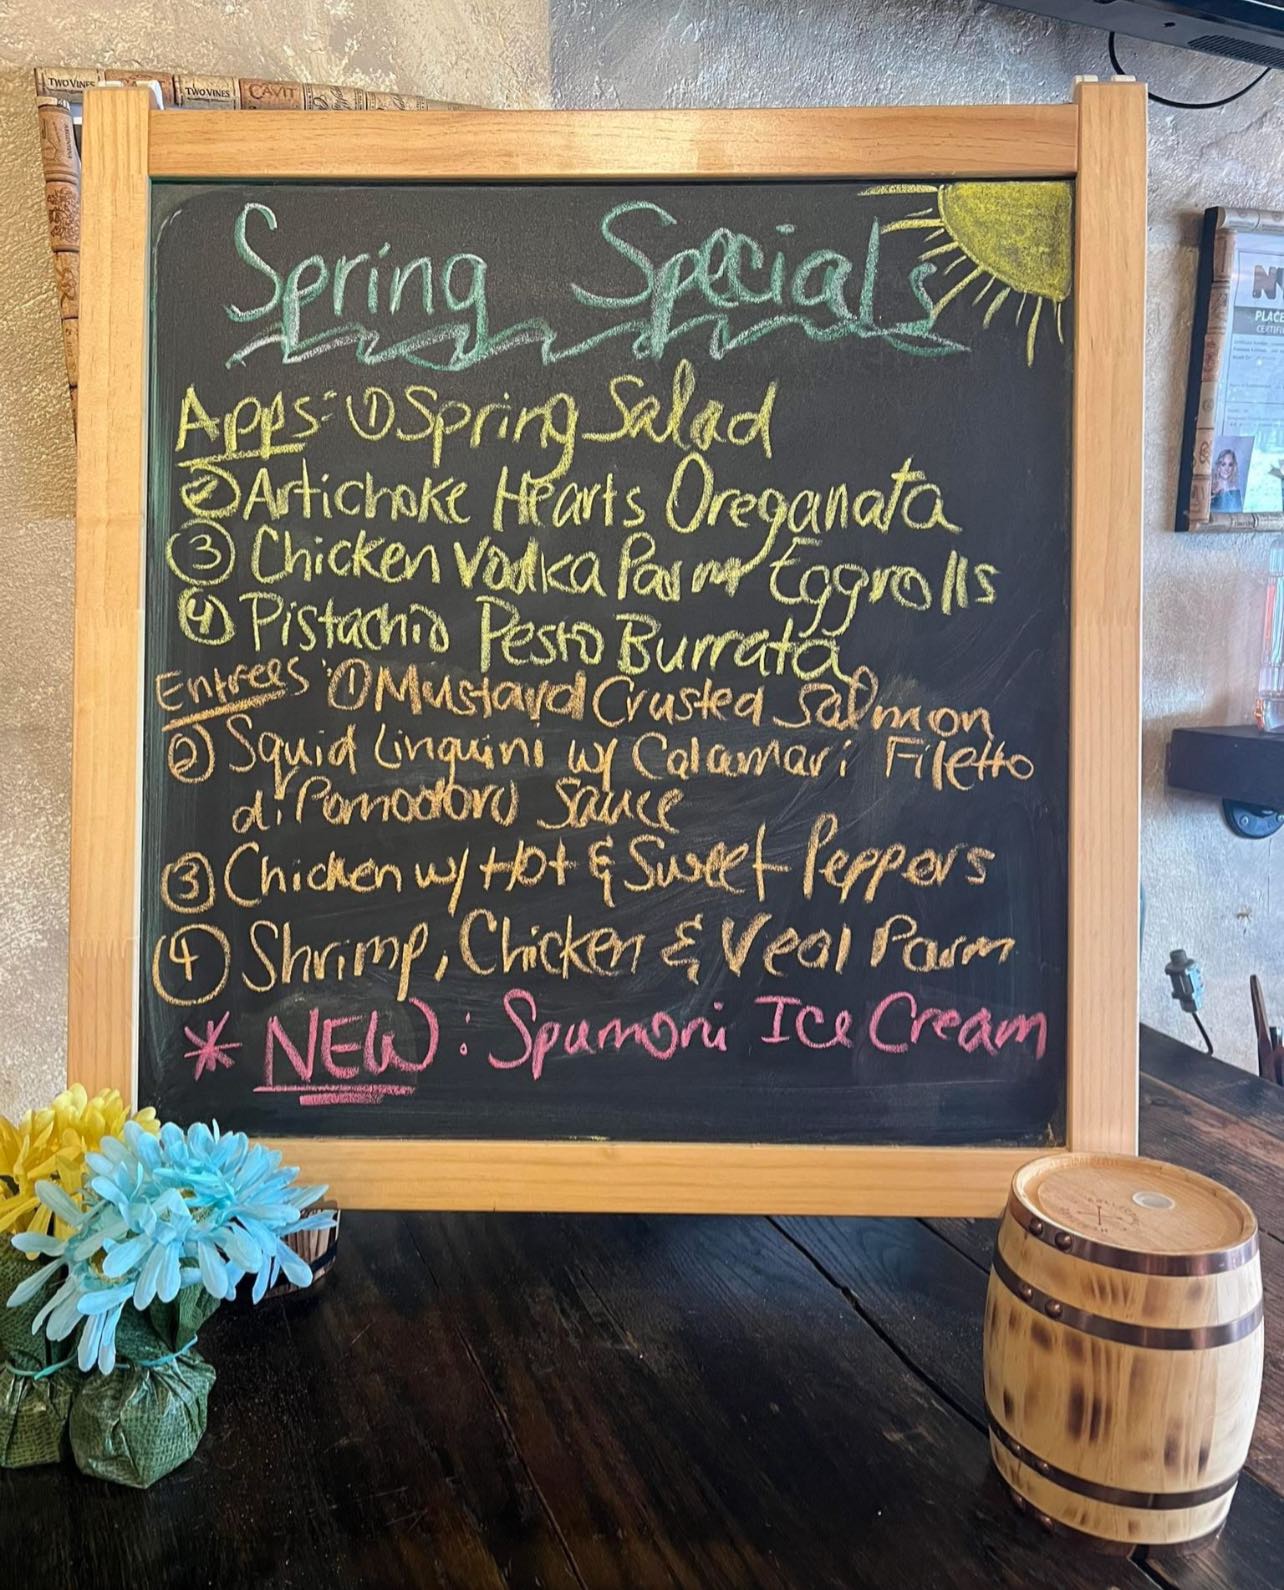 TWO VINES TWO VINES CAVIT
Spring Specials
Apps: ① Spring Salad
② Artichoke Hearts Oreganata
③ Chicken Vodka Parm Eggrolls
④ Pistachio Pesto Burrata
Entrees: ① Mustard Crusted Salmon
② Squid Linguini w/ Calamari Filetto
di Pomodoro Sauce
③ Chicken w/ Hot & Sweet Peppers
④ Shrimp, Chicken & Veal Parm
* NEW: Spumoni Ice Cream